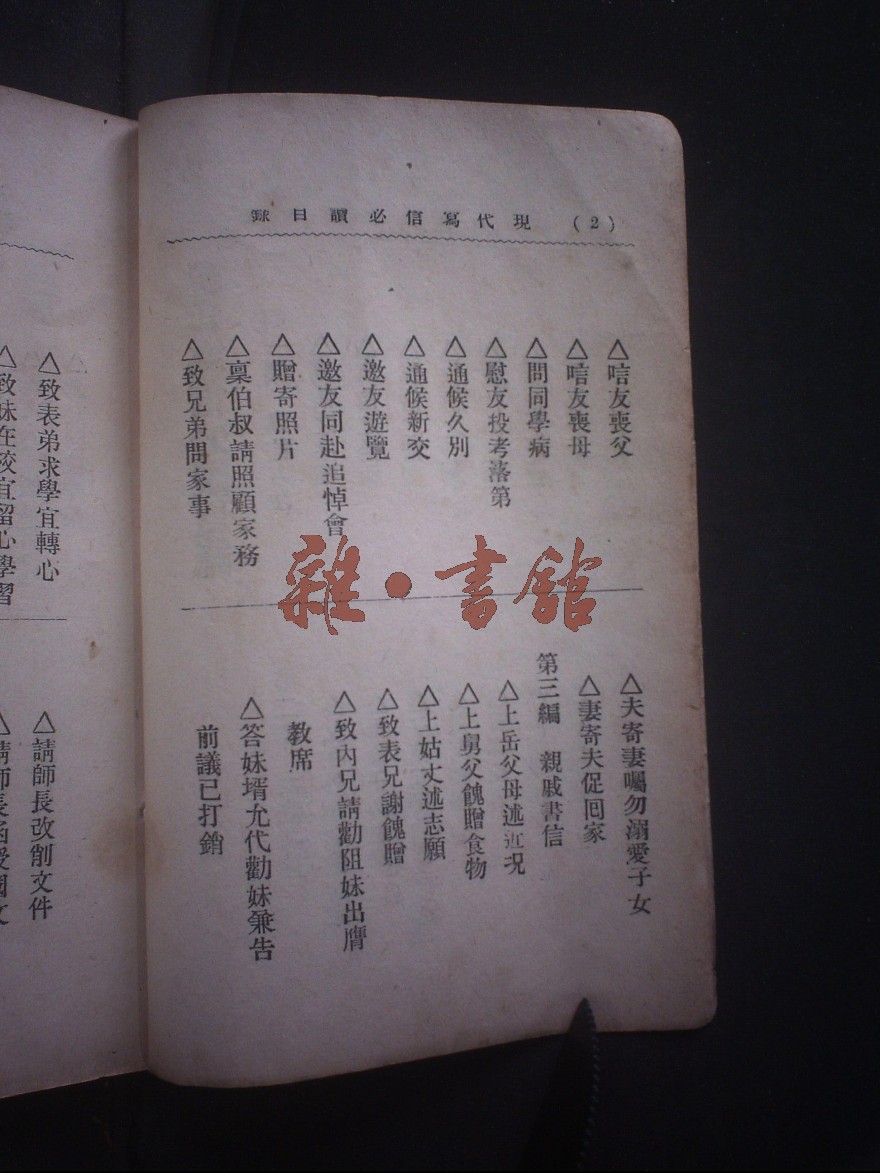 現代寫信必讀目錄 (2)
△唁友喪父
△唁友喪母
△問同學病
△慰友投考落第
△通候久別
△通候新交
△邀友遊覽
△邀友同赴追悼會
△贈寄照片
△稟伯叔請照顧家務
△致兄弟問家事
△夫寄妻囑勿溺愛子女
△妻寄夫促囘家
第三編 親戚書信
△上岳父母述近況
△上舅父餽贈食物
△上姑丈述志願
△致表兄謝餽贈
△致內兄請勸阻妹出膺
教席
△答妹壻允代勸妹兼告
前議已打銷
△致表弟求學宜轉心
△致妹在校宜留心學習
△請師長改削文件
△請師長函授國文
雜·書館